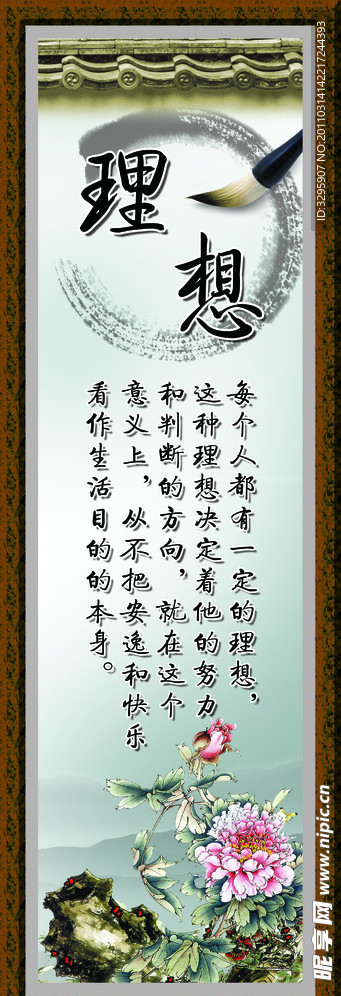 理想
每个人都有一定的理想，
这种理想决定着他的努力
和判断的方向，就在这个
意义上，从不把安逸和快乐
看作生活目的的本身。
ID:3295907 NO:20110314142217244393
昵享网 www.nipic.cn